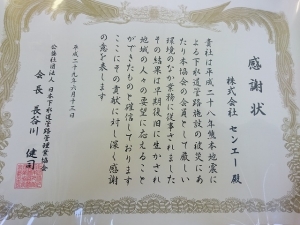 感謝状
株式会社 センエー 殿
貴社は平成二十八年熊本地震に
よる下水道管路施設の被災にあ
たり本協会の会員として厳しい
環境のなか業務に従事されました
その結果は早期復旧に生かされ
地域の人々の要望に応えること
ができたものと確信しております
ここにその貢献に対し深く感謝
の意を表します
平成二十九年六月十三日
公益社団法人 日本下水道管路管理業協会
会長 長谷川 健司